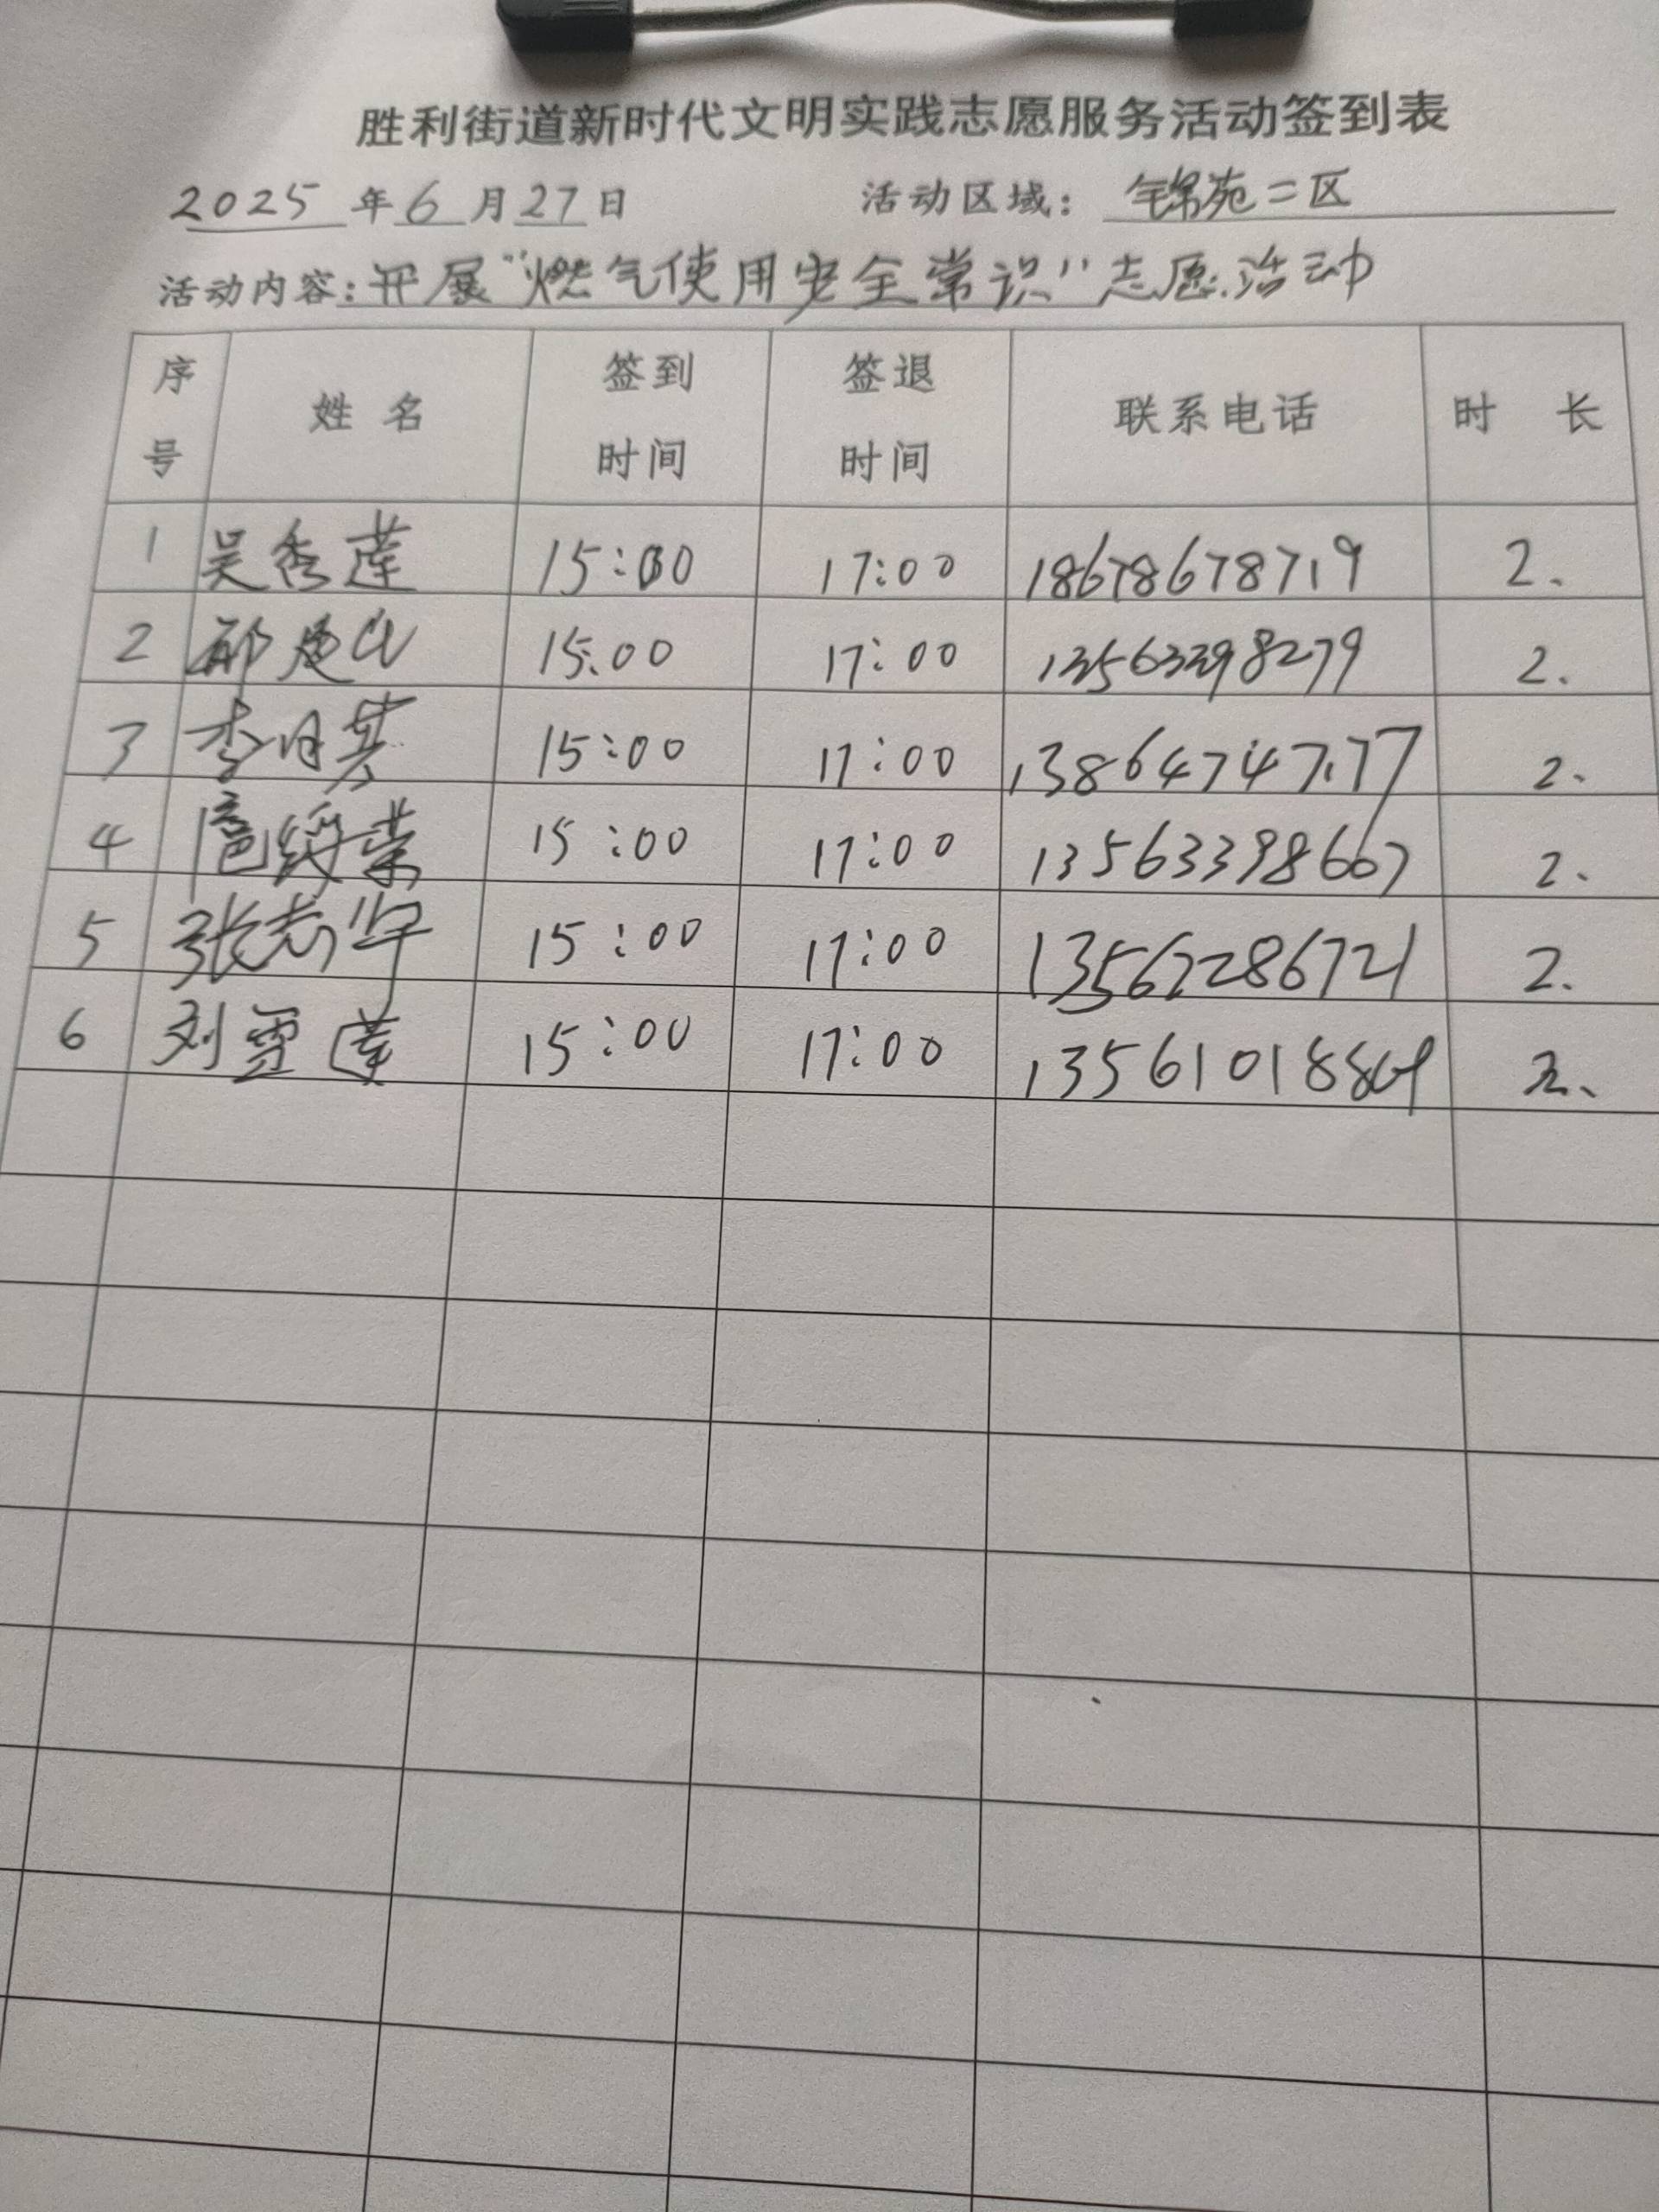 胜利街道新时代文明实践志愿服务活动签到表
2025年6月27日 活动区域：锦苑二区
活动内容：开展"燃气使用安全常识"志愿活动
序号 姓名 签到时间 签退时间 联系电话 时长
1 吴秀莲 15:00 17:00 18678678719 2.
2 15:00 17:00 13563398279 2.
3 李月英 15:00 17:00 13864747177 2.
4 15:00 17:00 13563398667 2.
5 张志华 15:00 17:00 2.
6 刘雪莲 15:00 17:00 2.